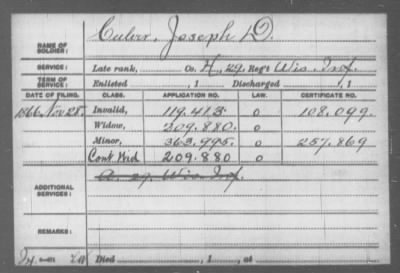 NAME OF SOLDIER: Culver, Joseph D.
SERVICE: Late rank, Co. H, 29 Reg't Wis. Inf.
TERM OF SERVICE: Enlisted , 1 Discharged , 1
DATE OF FILING. CLASS. APPLICATION NO. LAW. CERTIFICATE NO.
1866 Nov 28. Invalid, 119.413. o 108.099.
Widow, 209.880. o
Minor, 363.995. o 257.869
Cont Wid 209.880 o
ADDITIONAL SERVICES: A. 29. Wis. Inf.
REMARKS:
Died , 1 , at